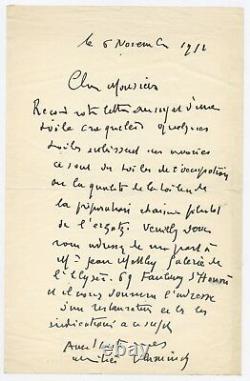 le 6 Novembre 1951
Cher Monsieur
Reçu votre lettre au sujet d'une
toile craquelée quelques
toiles
ce sont des toiles de l'occupation
ou la qualité de la toile de
la préparation était plutôt
de l'ersatz. Veuillez donc
vous adresser de ma part à
Mr Jean Galerie de
l'Elysée. 69 Faubourg St Honoré
et il vous donnera l'adresse
d'un restaurateur et les
indications à ce sujet
Avec
Vlaminck